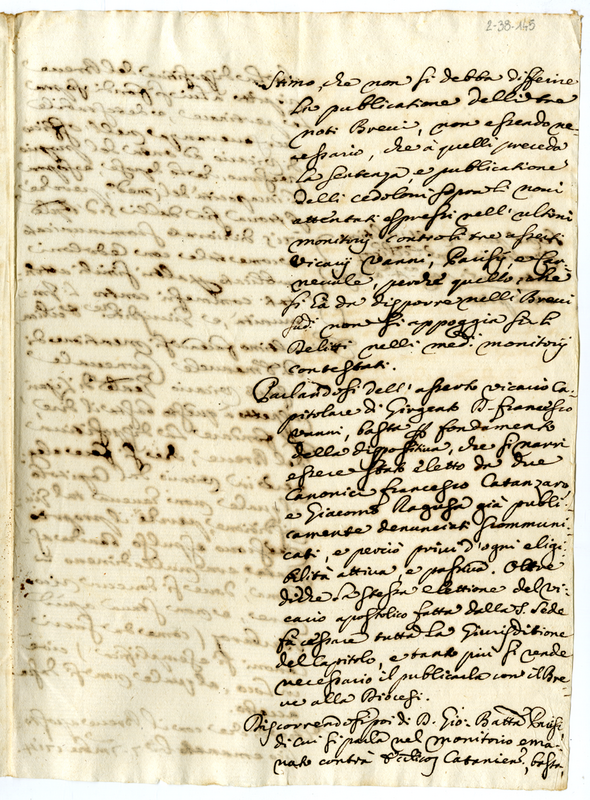 2-38-145
Stimo, che non si debba differire
la publicatione delli tre
noti Brevi, non essendo ne-
cessario, che à quelli preceda
la sentenza, e publicatione
delli cedoloni sopra li novi
attentati espressi nell'ultimi
monitorij contro li tre asserti
Vicarij Vanni, Parisi, e Car-
nevale, perché quello, che
si hà da disporre nelli Brevi
sudi non si appoggia su li
Delitti nelli medi monitorij
contestati.
Parlandosi dell'asserto vicario Ca-
pitolare di Girgento D. Francesco
Vanni, basta per fondamento
della dispositiva, che si narri
essere stato eletto da due
Canonici Francesco Catanzaro,
e Giacomo Ragusa già publi-
camente denunciati scommuni-
cati, e perciò privi d'ogni eligi-
bilità attiva e passiva. Oltre
di che la stessa elettione del vi-
cario apostolico fatta dalla S. Sede
fà cessare tutta la Giurisditione
del Capitolo, e tanto più si rende
necessario il publicarla con il Bre-
ve alla Diocesi.
Discorrendosi poi di D. Gio: Batta Parisi,
di cui si parla nel monitorio ema-
nato contrà Catanien, basta,